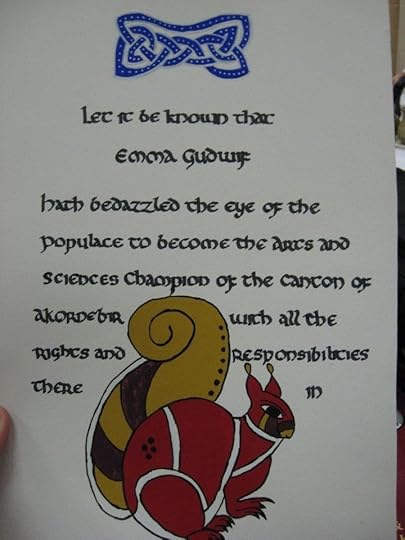 Let it be known that
Emma Gudwif
hath bedazzled the eye of the
populace to become the Arts and
Sciences Champion of the Canton of
Akornebir with all the
Rights and Responsibilities
there in